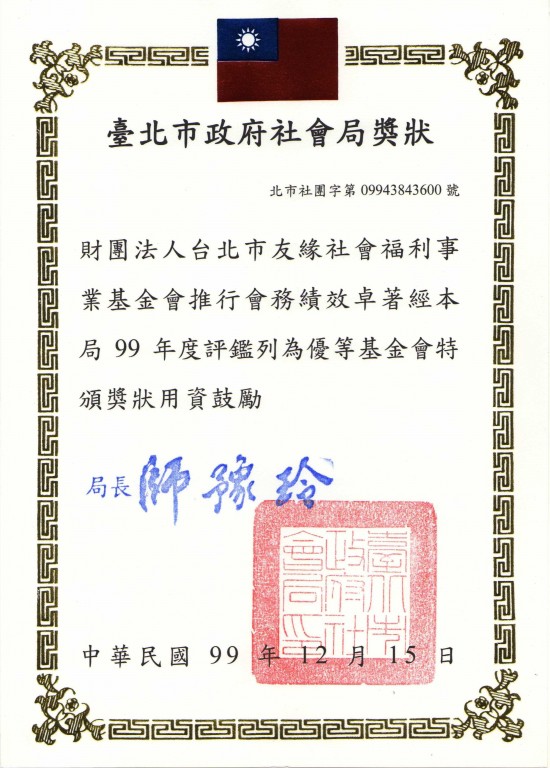 臺北市政府社會局獎狀
北市社團字第 09943843600 號
財團法人台北市友緣社會福利事
業基金會推行會務績效卓著經本
局 99 年度評鑑列為優等基金會特
頒獎狀用資鼓勵
局長 師豫玲
臺北市
政府社
會局印
中華民國 99 年 12 月 15 日